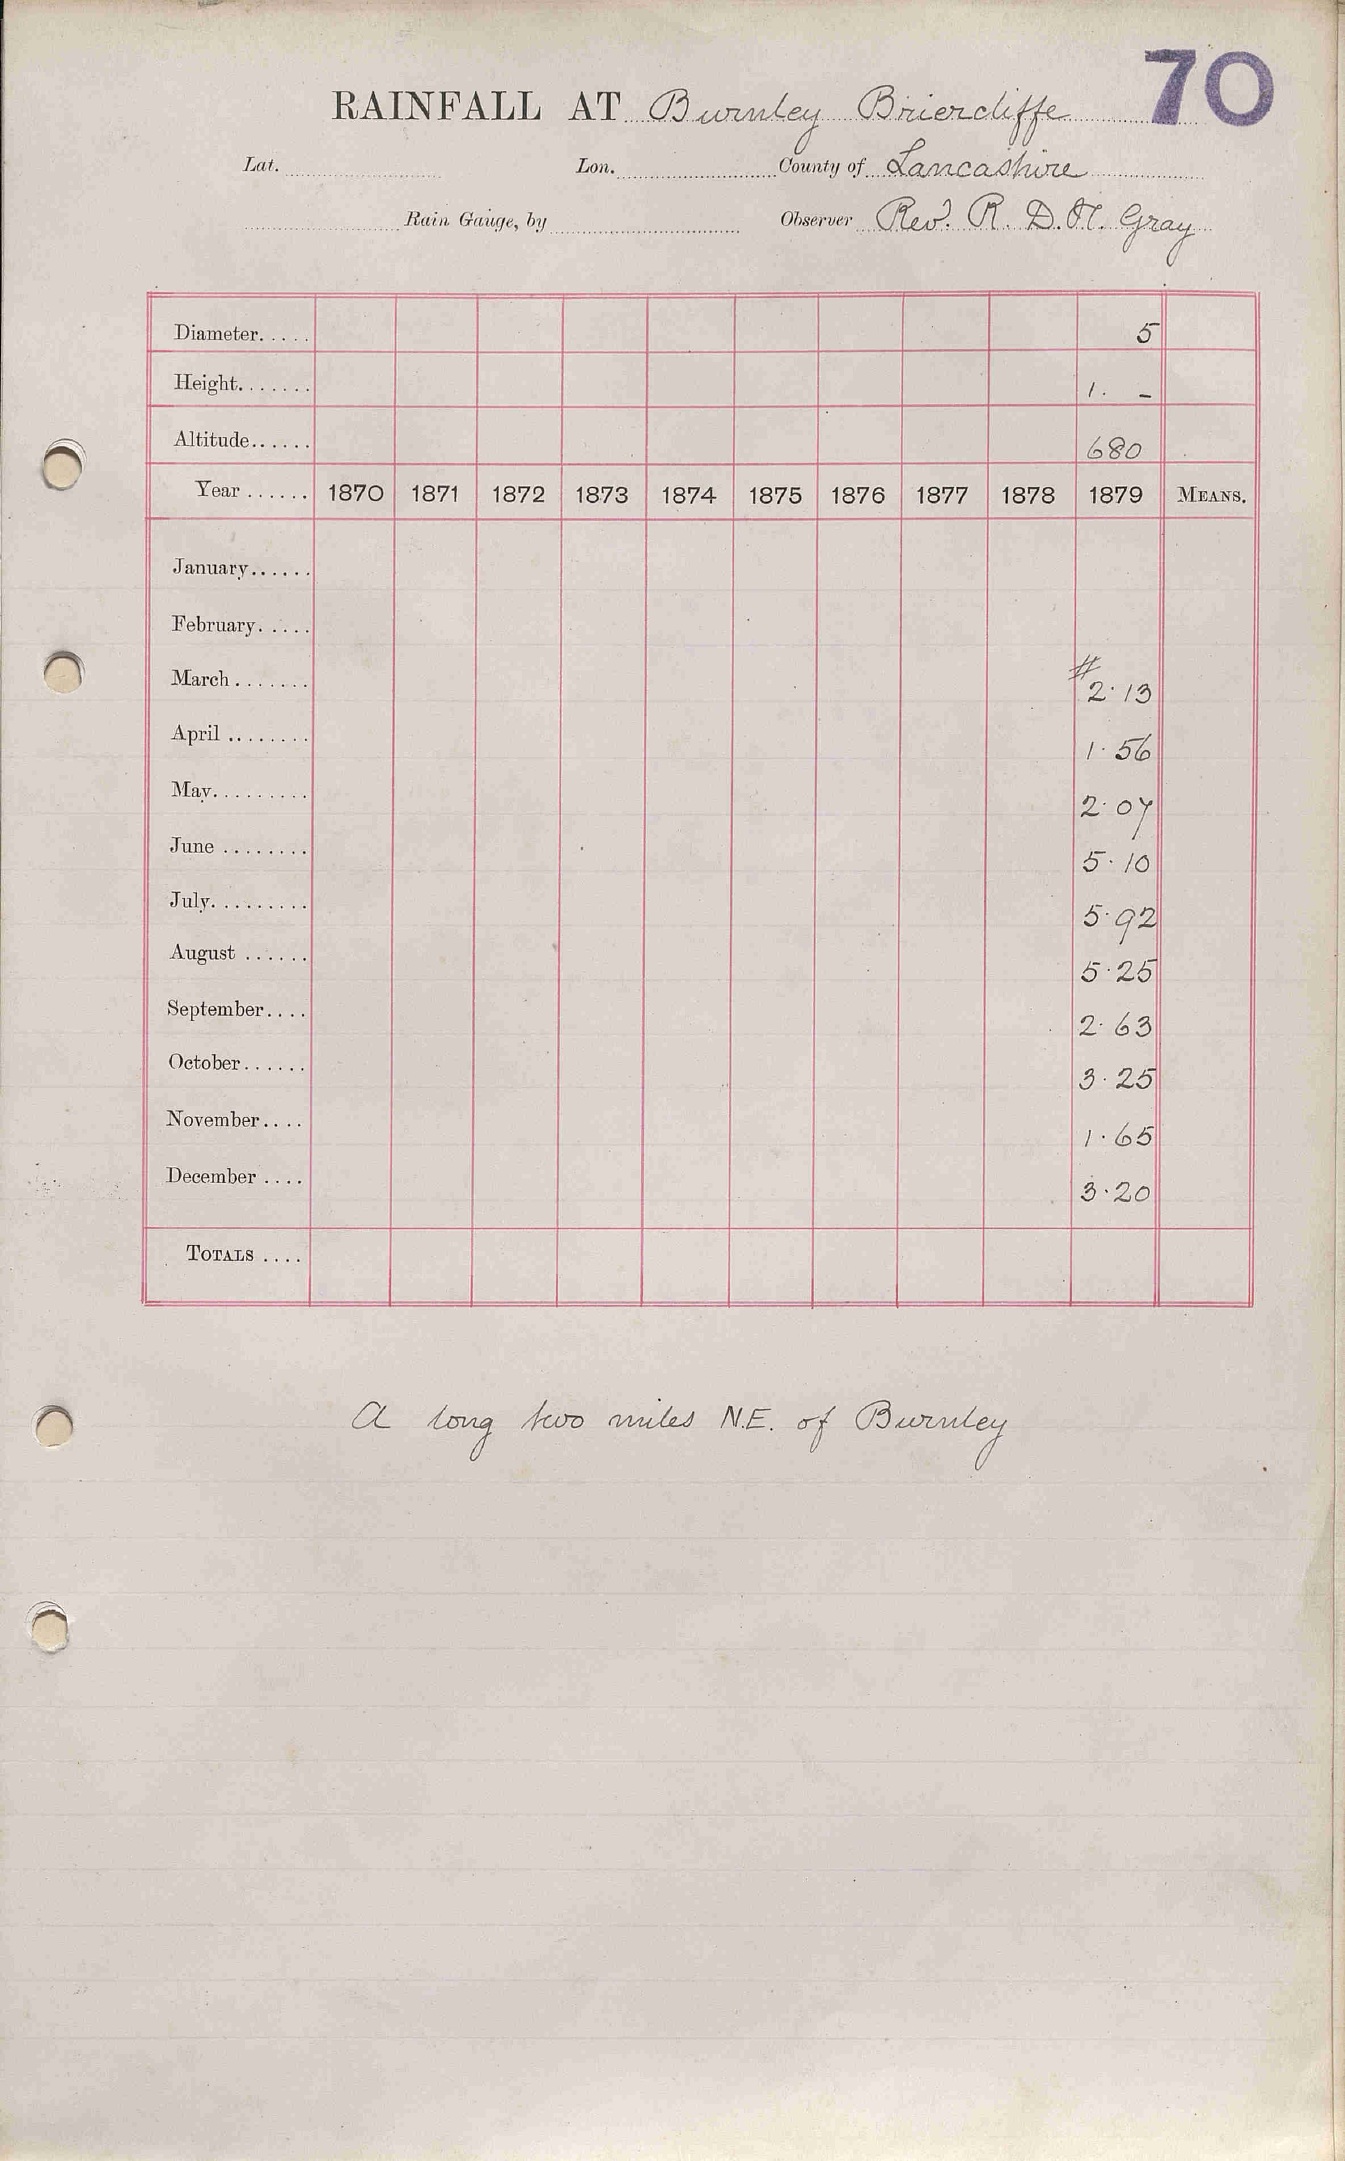 70
RAINFALL AT Burnley Briercliffe
Lat. Lon. County of Lancashire
Rain Gauge, by Observer Rev. R. D. H. Gray
Diameter..... 5
Height....... 1. -
Altitude...... 680
Year ...... 1870 1871 1872 1873 1874 1875 1876 1877 1878 1879 MEANS.
January......
February.....
March....... # 2.13
April ........ 1.56
May......... 2.07
June ........ 5.10
July......... 5.92
August ...... 5.25
September.... 2.63
October...... 3.25
November.... 1.65
December .... 3.20
TOTALS ....
A long two miles N.E. of Burnley